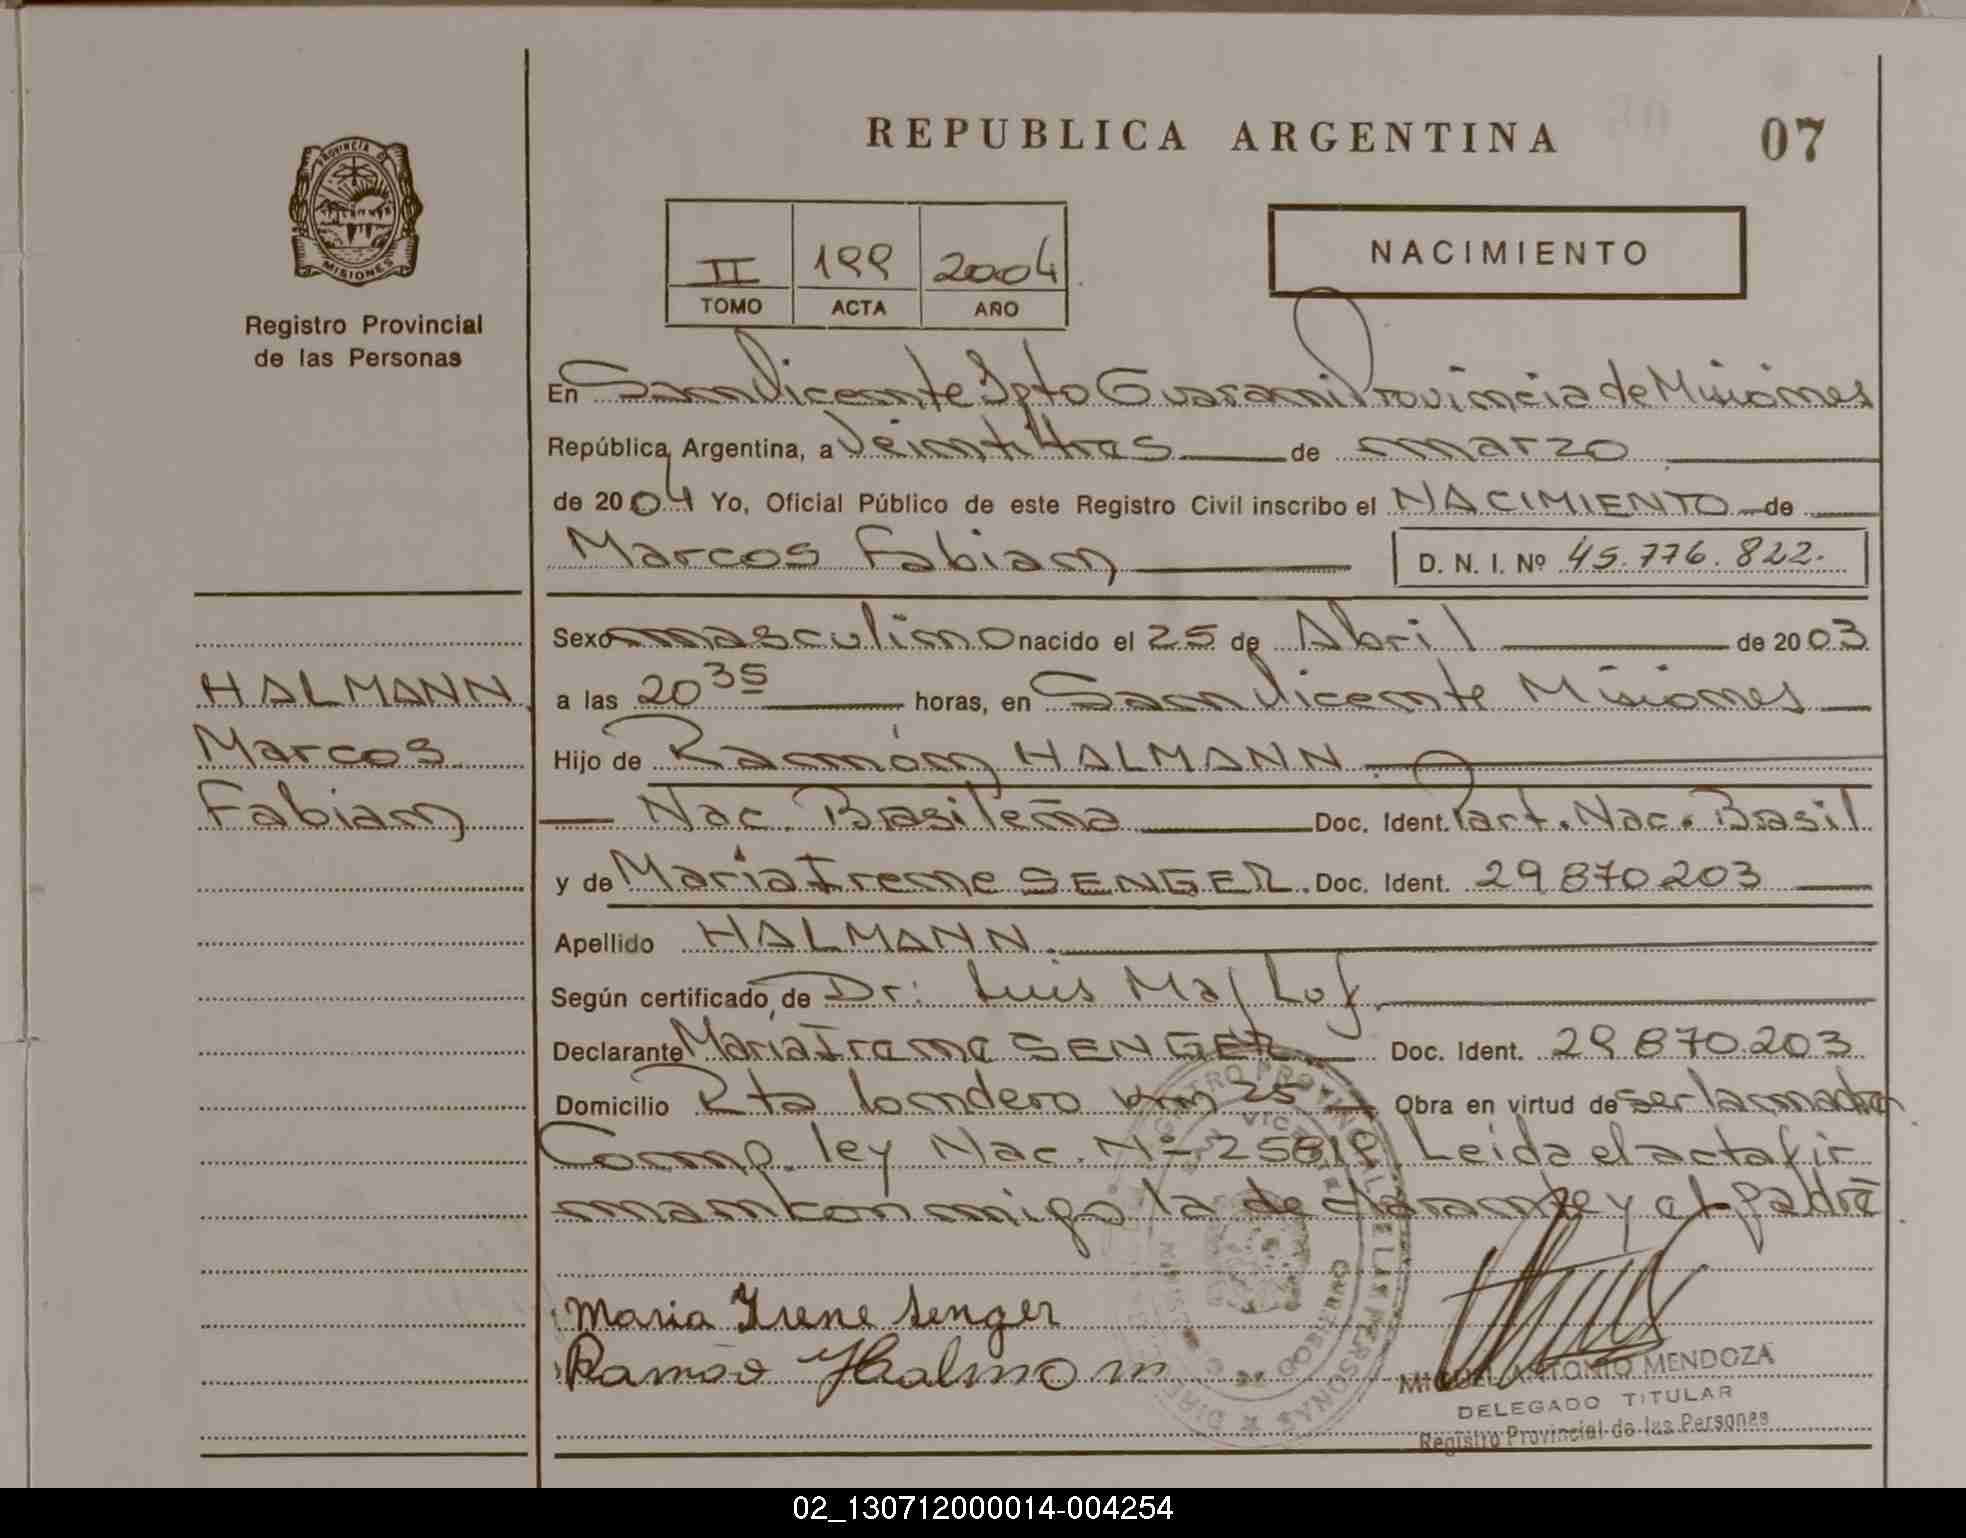 REPUBLICA ARGENTINA
07
PROVINCIA DE
MISIONES
Registro Provincial
de las Personas
II 199 2004
TOMO ACTA AÑO
NACIMIENTO
En San Vicente Dpto Guarani Provincia de Misiones
República Argentina, a Veintitres de marzo
de 2004 Yo, Oficial Público de este Registro Civil inscribo el NACIMIENTO de
Marcos Fabian D. N. I. Nº 45.776.822.
Sexo masculino nacido el 25 de Abril de 2003
HALMANN
a las 20 35 horas, en San Vicente Misiones
Marcos
Hijo de Ramón HALMANN.
Fabian
Nac. Brasileña Doc. Ident. Part. Nac. Brasil
y de María Irene SENGER. Doc. Ident. 29 870 203
Apellido HALMANN.
Según certificado de Dr. Luis
Declarante María Irene SENGER Doc. Ident. 29 870.203
Domicilio Rta londero km 25 Obra en virtud de ser la madre
Comp. ley Nac. Nº 25819. Leida el acta fir
man conmigo la declarante y el padre
Maria Irene Senger
Ramão
MIGUEL ANTONIO MENDOZA
DELEGADO TITULAR
Registro Provincial de las Personas
02_130712000014-004254